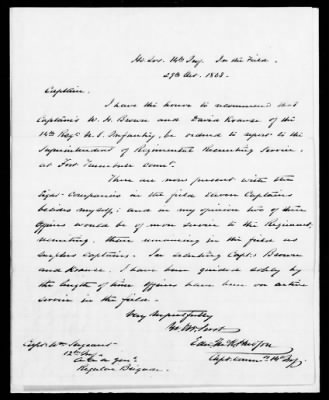 Hd. Qrs. 14th Infy. In the Field.
29th Oct. 1863.
Captain,
I have the honor to recommend that
Captains W. H. Brown and David Krause of the
14th Regt. U.S. Infantry, be ordered to report to the
Superintendent of Regimental Recruiting Service,
at Fort Trumbull Conn.
There are now present with the
eight Companies in the field eleven Captains
besides myself; and in my opinion two of these
Officers would be of more service to the Regiment,
recruiting, than remaining in the field as
surplus Captains. In selecting Capts. Brown
and Krause, I have been guided solely by
the length of time Officers have been on active
service in the field.
Very Respectfully
Yr. Obt. Servt.
Capt. Comm. 14th Infy.
Capt. Wm. Sergeant
12th Infy.
A. A. A. Genl.
Regular Brigade.